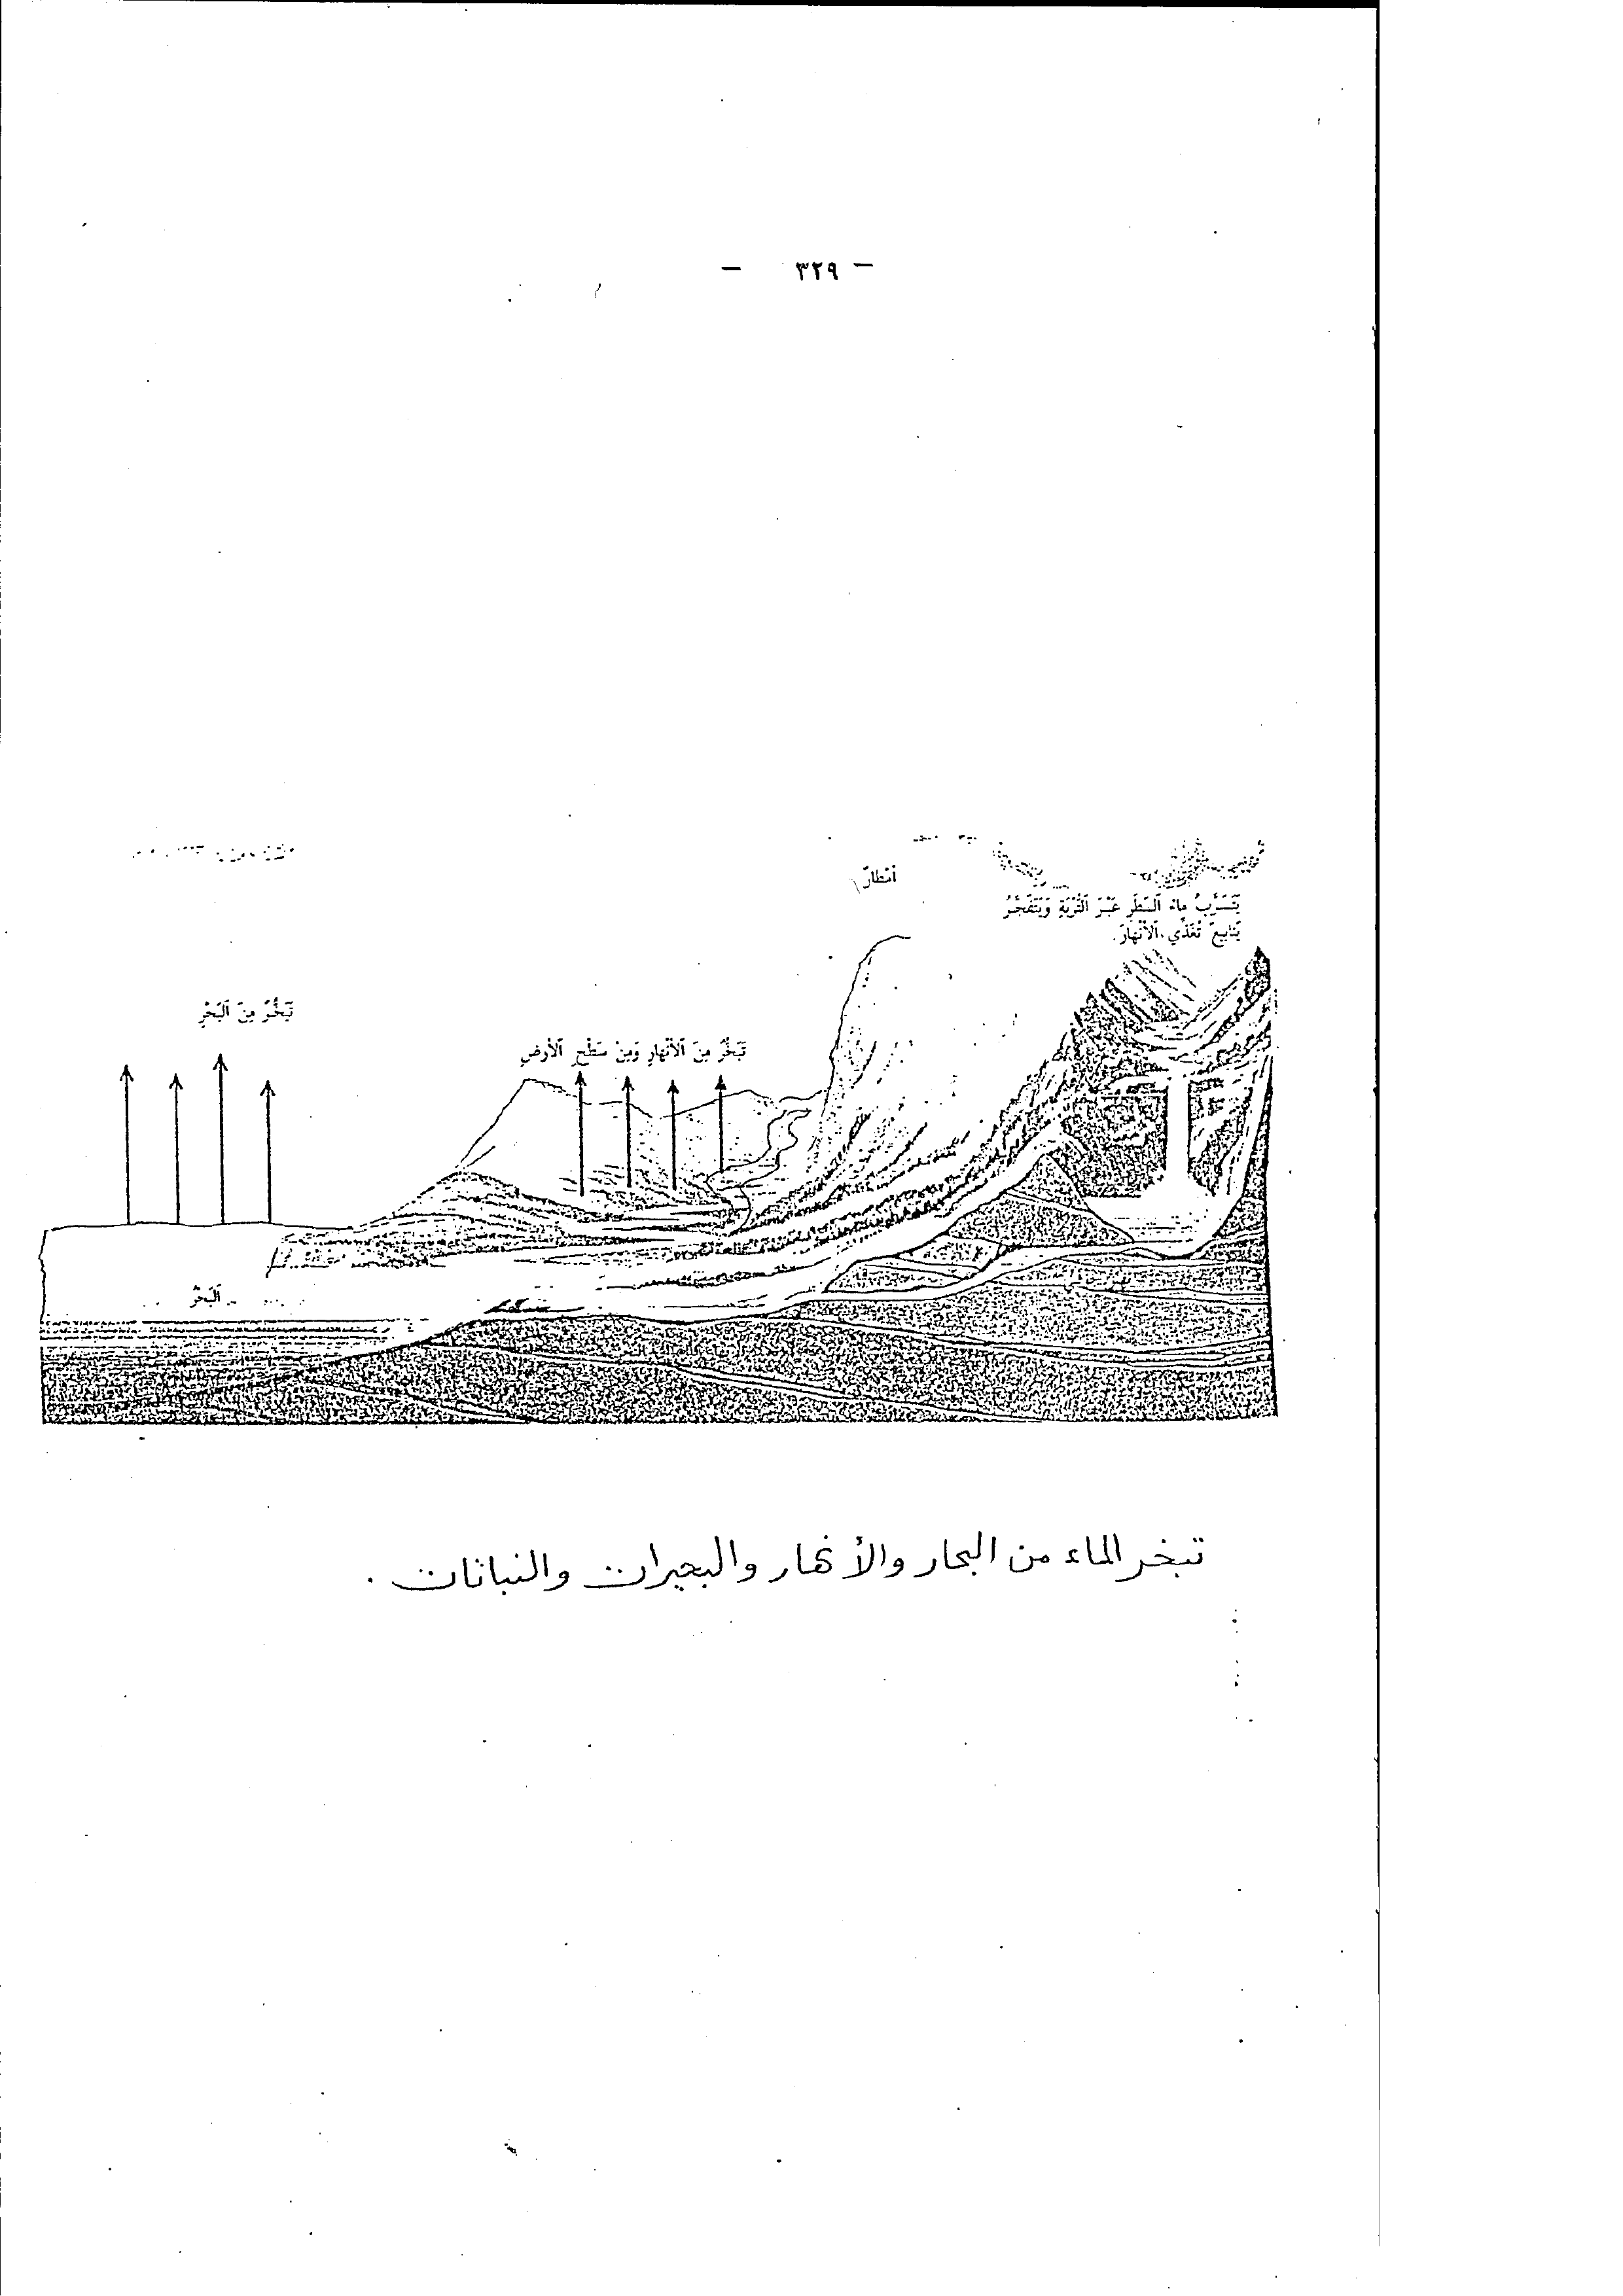 — ٣٢٩ —
أمْطارٌ
يَتَسَرَّبُ ماءُ ٱلمَطَرِ عَبْرَ ٱلتُّرْبَةِ وَيَتَفَجَّرُ
يَنابيعَ تُغَذِّي ٱلأَنْهارَ.
تَبَخُّرٌ مِنَ ٱلبَحْرِ
تَبَخُّرٌ مِنَ ٱلأَنْهارِ وَمِنْ سَطْحِ ٱلأَرْضِ
ٱلبَحْرُ
تبخر الماء من البحار والأنهار والبحيرات والنباتات .